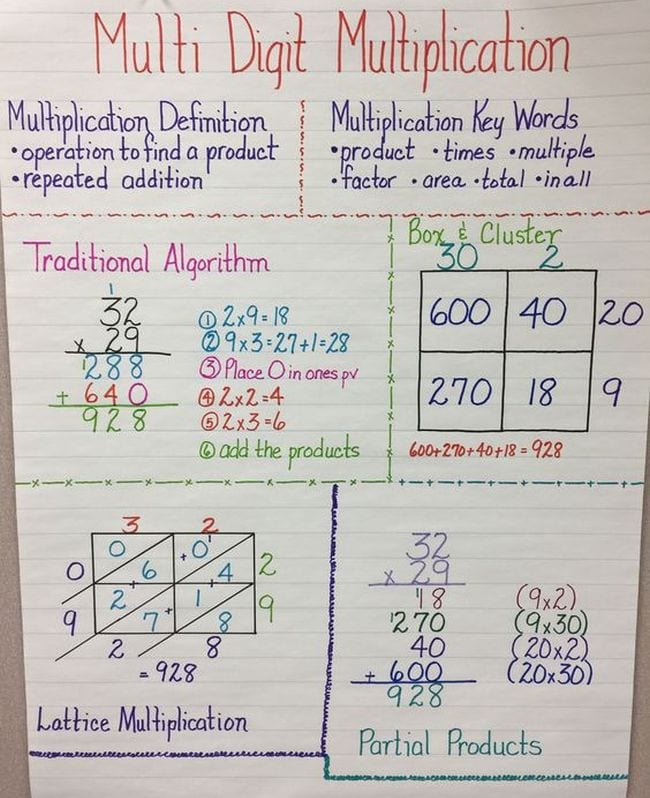 Multi Digit Multiplication
Multiplication Definition
•operation to find a product
•repeated addition
Multiplication Key Words
•product •times •multiple
•factor •area •total •in all
Traditional Algorithm
1
32
x 29
1288
+ 640
928
① 2x9=18
② 9x3=27+1=28
③ Place 0 in ones pv
④ 2x2=4
⑤ 2x3=6
⑥ add the products
Box & Cluster
30 2
600 40 20
270 18 9
600+270+40+18=928
3 2
0 +0 1
0 6 + 4 2
2 + 1
9 7 8 9
2 8
=928
Lattice Multiplication
32
x 29
118 (9x2)
1270 (9x30)
40 (20x2)
+ 600 (20x30)
928
Partial Products